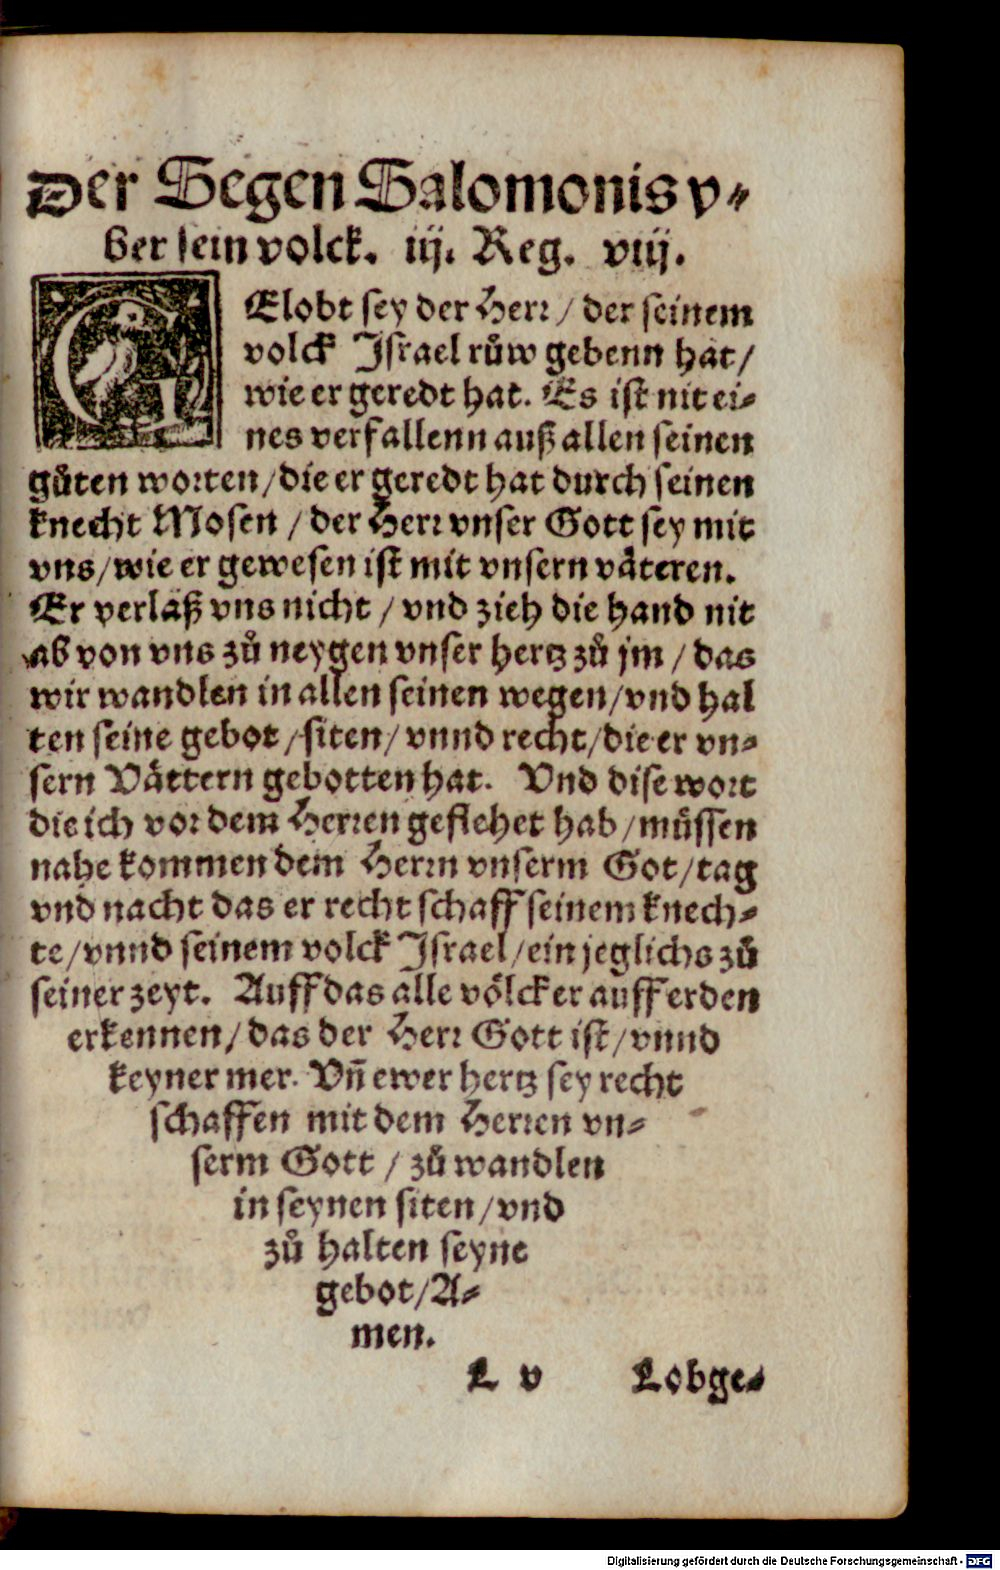 Der Segen Salomonis v⸗
ber sein volck. iij. Reg. viij.
GElobt sey der Herr / der seinem
volck Israel růw gebenn hat /
wie er geredt hat. Es ist nit ei⸗
nes verfallenn auß allen seinen
gůten worten / die er geredt hat durch seinen
knecht Mosen / der Herr vnser Gott sey mit
vns / wie er gewesen ist mit vnsern vätern.
Er verlaß vns nicht / vnd zieh die hand nit
ab von vns zů neygen vnser hertz zů jm / das
wir wandlen in allen seinen wegen / vnd hal
ten seine gebot / siten / vnnd recht / die er vn⸗
sern Vättern gebotten hat. Vnd dise wort
die ich vor dem Herren geflehet hab / müssen
nahe kommen dem Herrn vnserm Got / tag
vnd nacht das er recht schaff seinem knech⸗
te / vnnd seinem volck Israel / ein jeglichs zů
seiner zeyt. Auff das alle völcker auff erden
erkennen / das der Herr Gott ist / vnnd
keyner mer. Vn̄ ewer hertz sey recht
schaffen mit dem Herren vn⸗
serm Gott / zů wandlen
in seynen siten / vnd
zů halten seyne
gebot / A⸗
men.
L v Lobge⸗
Digitalisierung gefördert durch die Deutsche Forschungsgemeinschaft - DFG